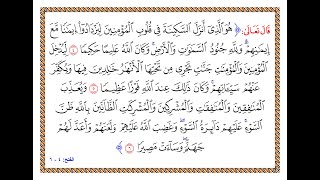 قَالَ تَعَالَى: ﴿ هُوَ ٱلَّذِىٓ أَنزَلَ ٱلسَّكِينَةَ فِى قُلُوبِ ٱلْمُؤْمِنِينَ لِيَزْدَادُوٓا۟ إِيمَٰنًا مَّعَ
إِيمَٰنِهِمْ ۗ وَلِلَّهِ جُنُودُ ٱلسَّمَٰوَٰتِ وَٱلْأَرْضِ ۚ وَكَانَ ٱللَّهُ عَلِيمًا حَكِيمًا ٤ لِّيُدْخِلَ
ٱلْمُؤْمِنِينَ وَٱلْمُؤْمِنَٰتِ جَنَّٰتٍ تَجْرِى مِن تَحْتِهَا ٱلْأَنْهَٰرُ خَٰلِدِينَ فِيهَا وَيُكَفِّرَ
عَنْهُمْ سَيِّـَٔاتِهِمْ ۚ وَكَانَ ذَٰلِكَ عِندَ ٱللَّهِ فَوْزًا عَظِيمًا ٥ وَيُعَذِّبَ
ٱلْمُنَٰفِقِينَ وَٱلْمُنَٰفِقَٰتِ وَٱلْمُشْرِكِينَ وَٱلْمُشْرِكَٰتِ ٱلظَّآنِّينَ بِٱللَّهِ ظَنَّ
ٱلسَّوْءِ ۚ عَلَيْهِمْ دَآئِرَةُ ٱلسَّوْءِ ۖ وَغَضِبَ ٱللَّهُ عَلَيْهِمْ وَلَعَنَهُمْ وَأَعَدَّ لَهُمْ
جَهَنَّمَ ۖ وَسَآءَتْ مَصِيرًا ٦ ﴾
الفتح: ٤ - ٦